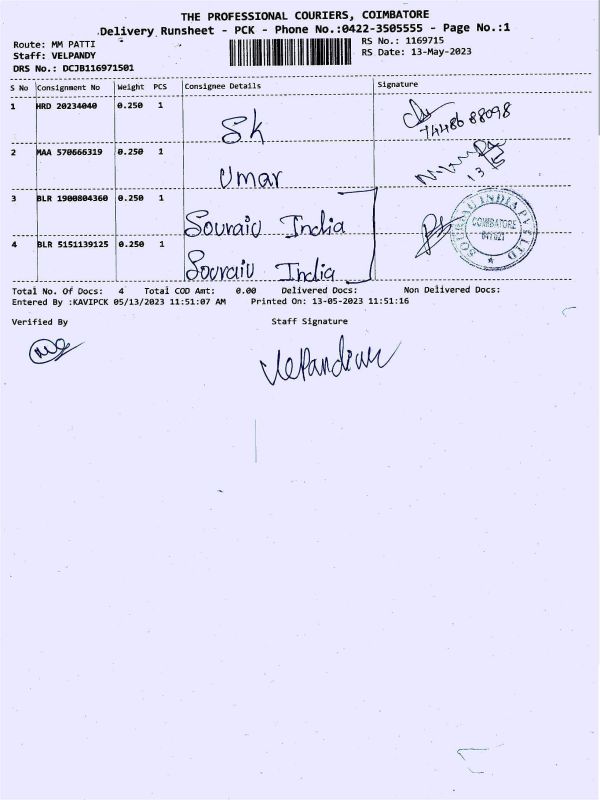 THE PROFESSIONAL COURIERS, COIMBATORE
Delivery Runsheet - PCK - Phone No.:0422-3505555 - Page No.:1
Route: MM PATTI
Staff: VELPANDY
DRS No.: DCJB116971501
RS No.: 1169715
RS Date: 13-May-2023
S No Consignment No Weight PCS Consignee Details Signature
1 HRD 20234040 0.250 1 SK
7448688098
2 MAA 570666319 0.250 1 Umar
3 BLR 1900804360 0.250 1 Souraiu India
COIMBATORE
4 BLR 5151139125 0.250 1 Souraiu India
Total No. Of Docs: 4 Total COD Amt: 0.00 Delivered Docs: Non Delivered Docs:
Entered By :KAVIPCK 05/13/2023 11:51:07 AM Printed On: 13-05-2023 11:51:16
Verified By Staff Signature